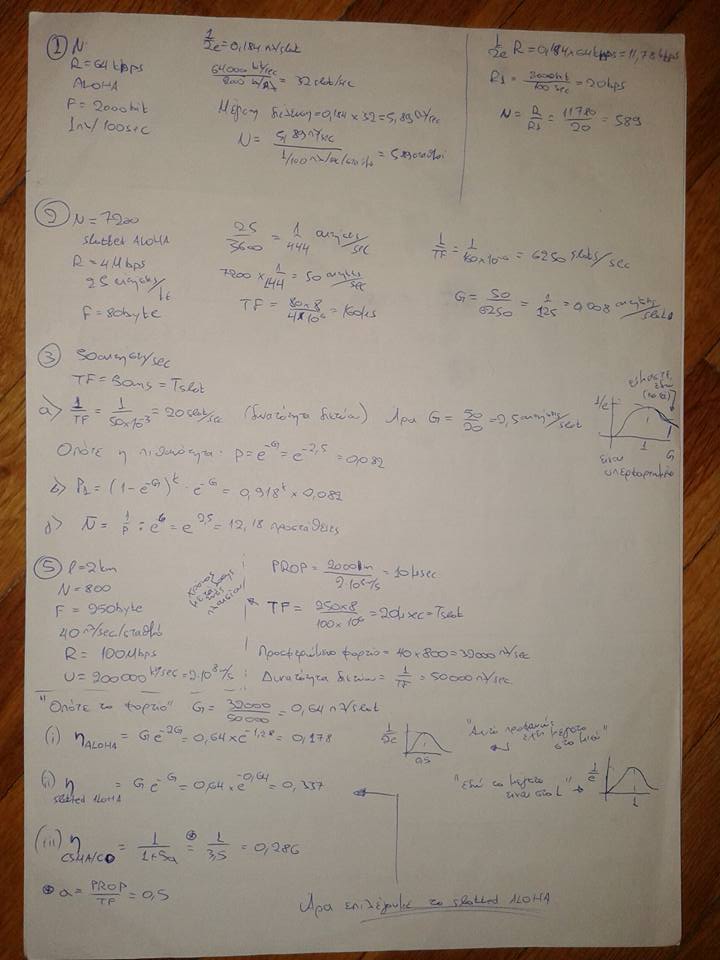 ① N
R = 64 kbps
ALOHA
F = 2000 bit
1 πλ/100sec
1/2e = 0,184 πλ/slot
64000 bit/sec / 2000 bit/πλ = 32 slot/sec
Μέγιστη διέλευση = 0,184 x 32 = 5,89 πλ/sec
N = 5,89 πλ/sec / 1/100 πλ/sec/σταθμό = 589 σταθμοί
1/2e R = 0,184 x 64 kbps = 11,78 kbps
R1 = 2000bit / 100 sec = 20bps
N = R/R1 = 11780/20 = 589
② N = 7200
slotted ALOHA
R = 4 Mbps
25 αιτήσεις/1h
F = 80byte
25/3600 = 1/144 αιτήσεις/sec
7200 x 1/144 = 50 αιτήσεις/sec
TF = 80x8 / 4x10⁶ = 160μs
1/TF = 1/160x10⁻⁶ = 6250 slots/sec
G = 50/6250 = 1/125 = 0,008 αιτήσεις/slot
③ 50 αιτήσεις/sec
TF = 50ms = Tslot
α> 1/TF = 1/50x10⁻³ = 20 slot/sec (δυνατότητα δικτύου) Άρα G = 50/20 = 2,5 αιτήσεις/slot
Οπότε η πιθανότητα· P = e^-G = e^-2,5 = 0,082
b> P1 = (1-e^-G)^k · e^-G = 0,918^k x 0,082
γ> N̄ = 1/P = e^G = e^2,5 = 12,18 προσπάθειες
είμαστε εδώ
1/e
1
G
είναι υπερφορτωμένο
⑤ l = 2km
N = 800
F = 250byte
40 πλ/sec/σταθμό
R = 100Mbps
U = 200000 km/sec = 2·10⁸ m/s
χρόνος μετάδοσης ενός πλαισίου
PROP = 2000m / 2·10⁸ m/s = 10μsec
TF = 250x8 / 100x10⁶ = 20μsec = Tslot
Προσφερόμενο φορτίο = 40 x 800 = 32000 πλ/sec
Δυνατότητα δικτύου = 1/TF = 50000 πλ/sec
"Οπότε το φορτίο" G = 32000/50000 = 0,64 πλ/slot
(i) ηALOHA = G e^-2G = 0,64 x e^-1,28 = 0,178
1/2e
0.5
"Αυτό προφανώς έχει μέγιστο στο μισό"
(ii) η slotted ALOHA = G e^-G = 0,64 x e^-0,64 = 0,337
"Εδώ το μέγιστο είναι στο 1"
1/e
1
(iii) η CSMA/CD = 1/1+5a = 1/3,5 = 0,286
a = PROP/TF = 0,5
Άρα επιλέγουμε το slotted ALOHA